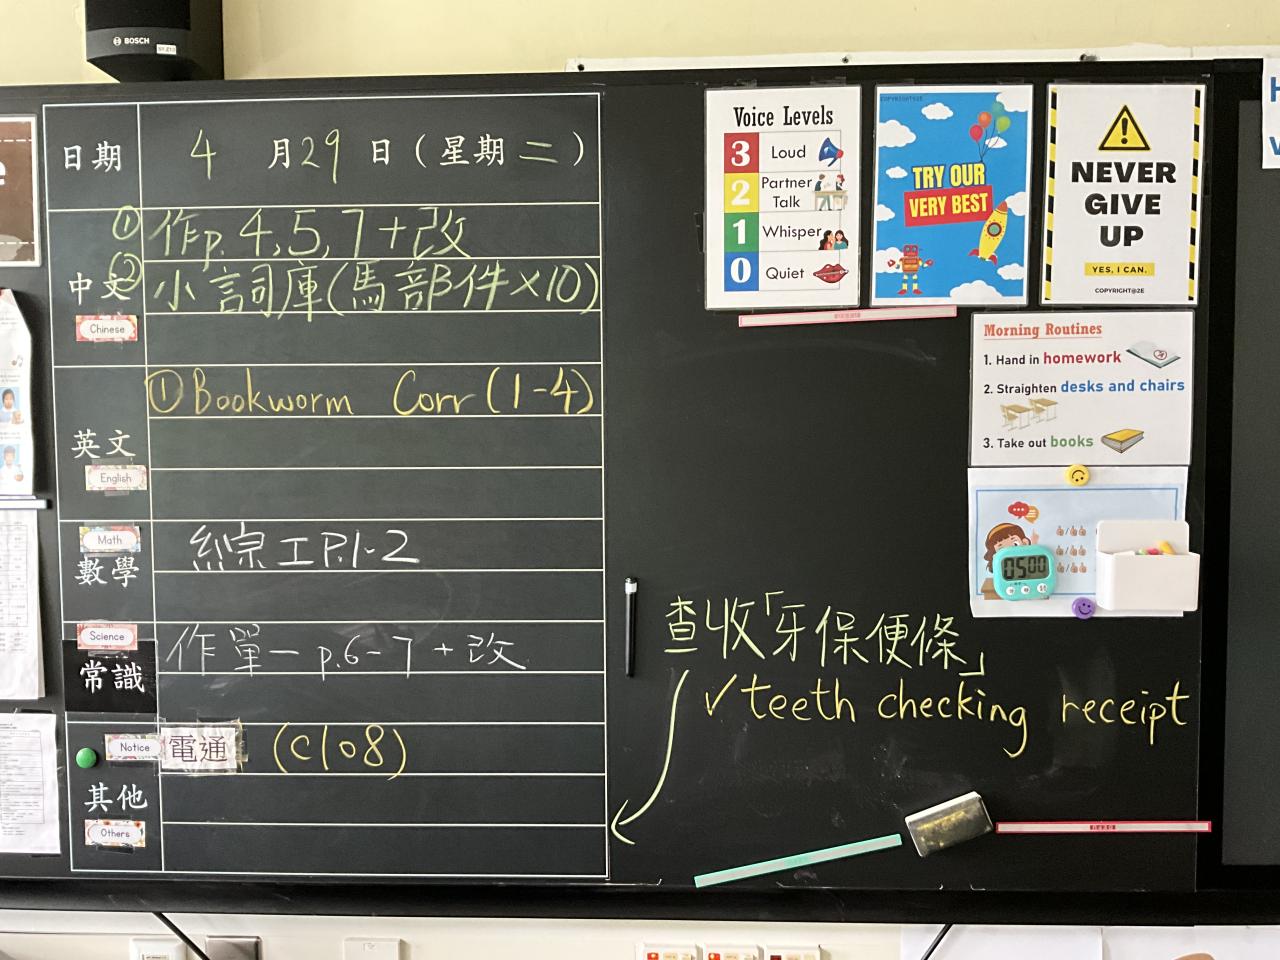 BOSCH
日期 4 月 29 日 ( 星期 二 )
中文 Chinese
① 作p. 4, 5, 7 + 改
② 小詞庫(馬部件×10)
英文 English
① Bookworm Corr (1-4)
Math 數學
綜工P.1-2
Science 常識
作單一 p.6-7 + 改
Notice 電通 (C108)
其他 Others
查收「牙保便條」
✓ teeth checking receipt
Voice Levels
3 Loud
2 Partner Talk
1 Whisper
0 Quiet
COPYRIGHT@2E
TRY OUR
VERY BEST
NEVER
GIVE
UP
YES, I CAN.
COPYRIGHT@2E
Morning Routines
1. Hand in homework
2. Straighten desks and chairs
3. Take out books
05:00